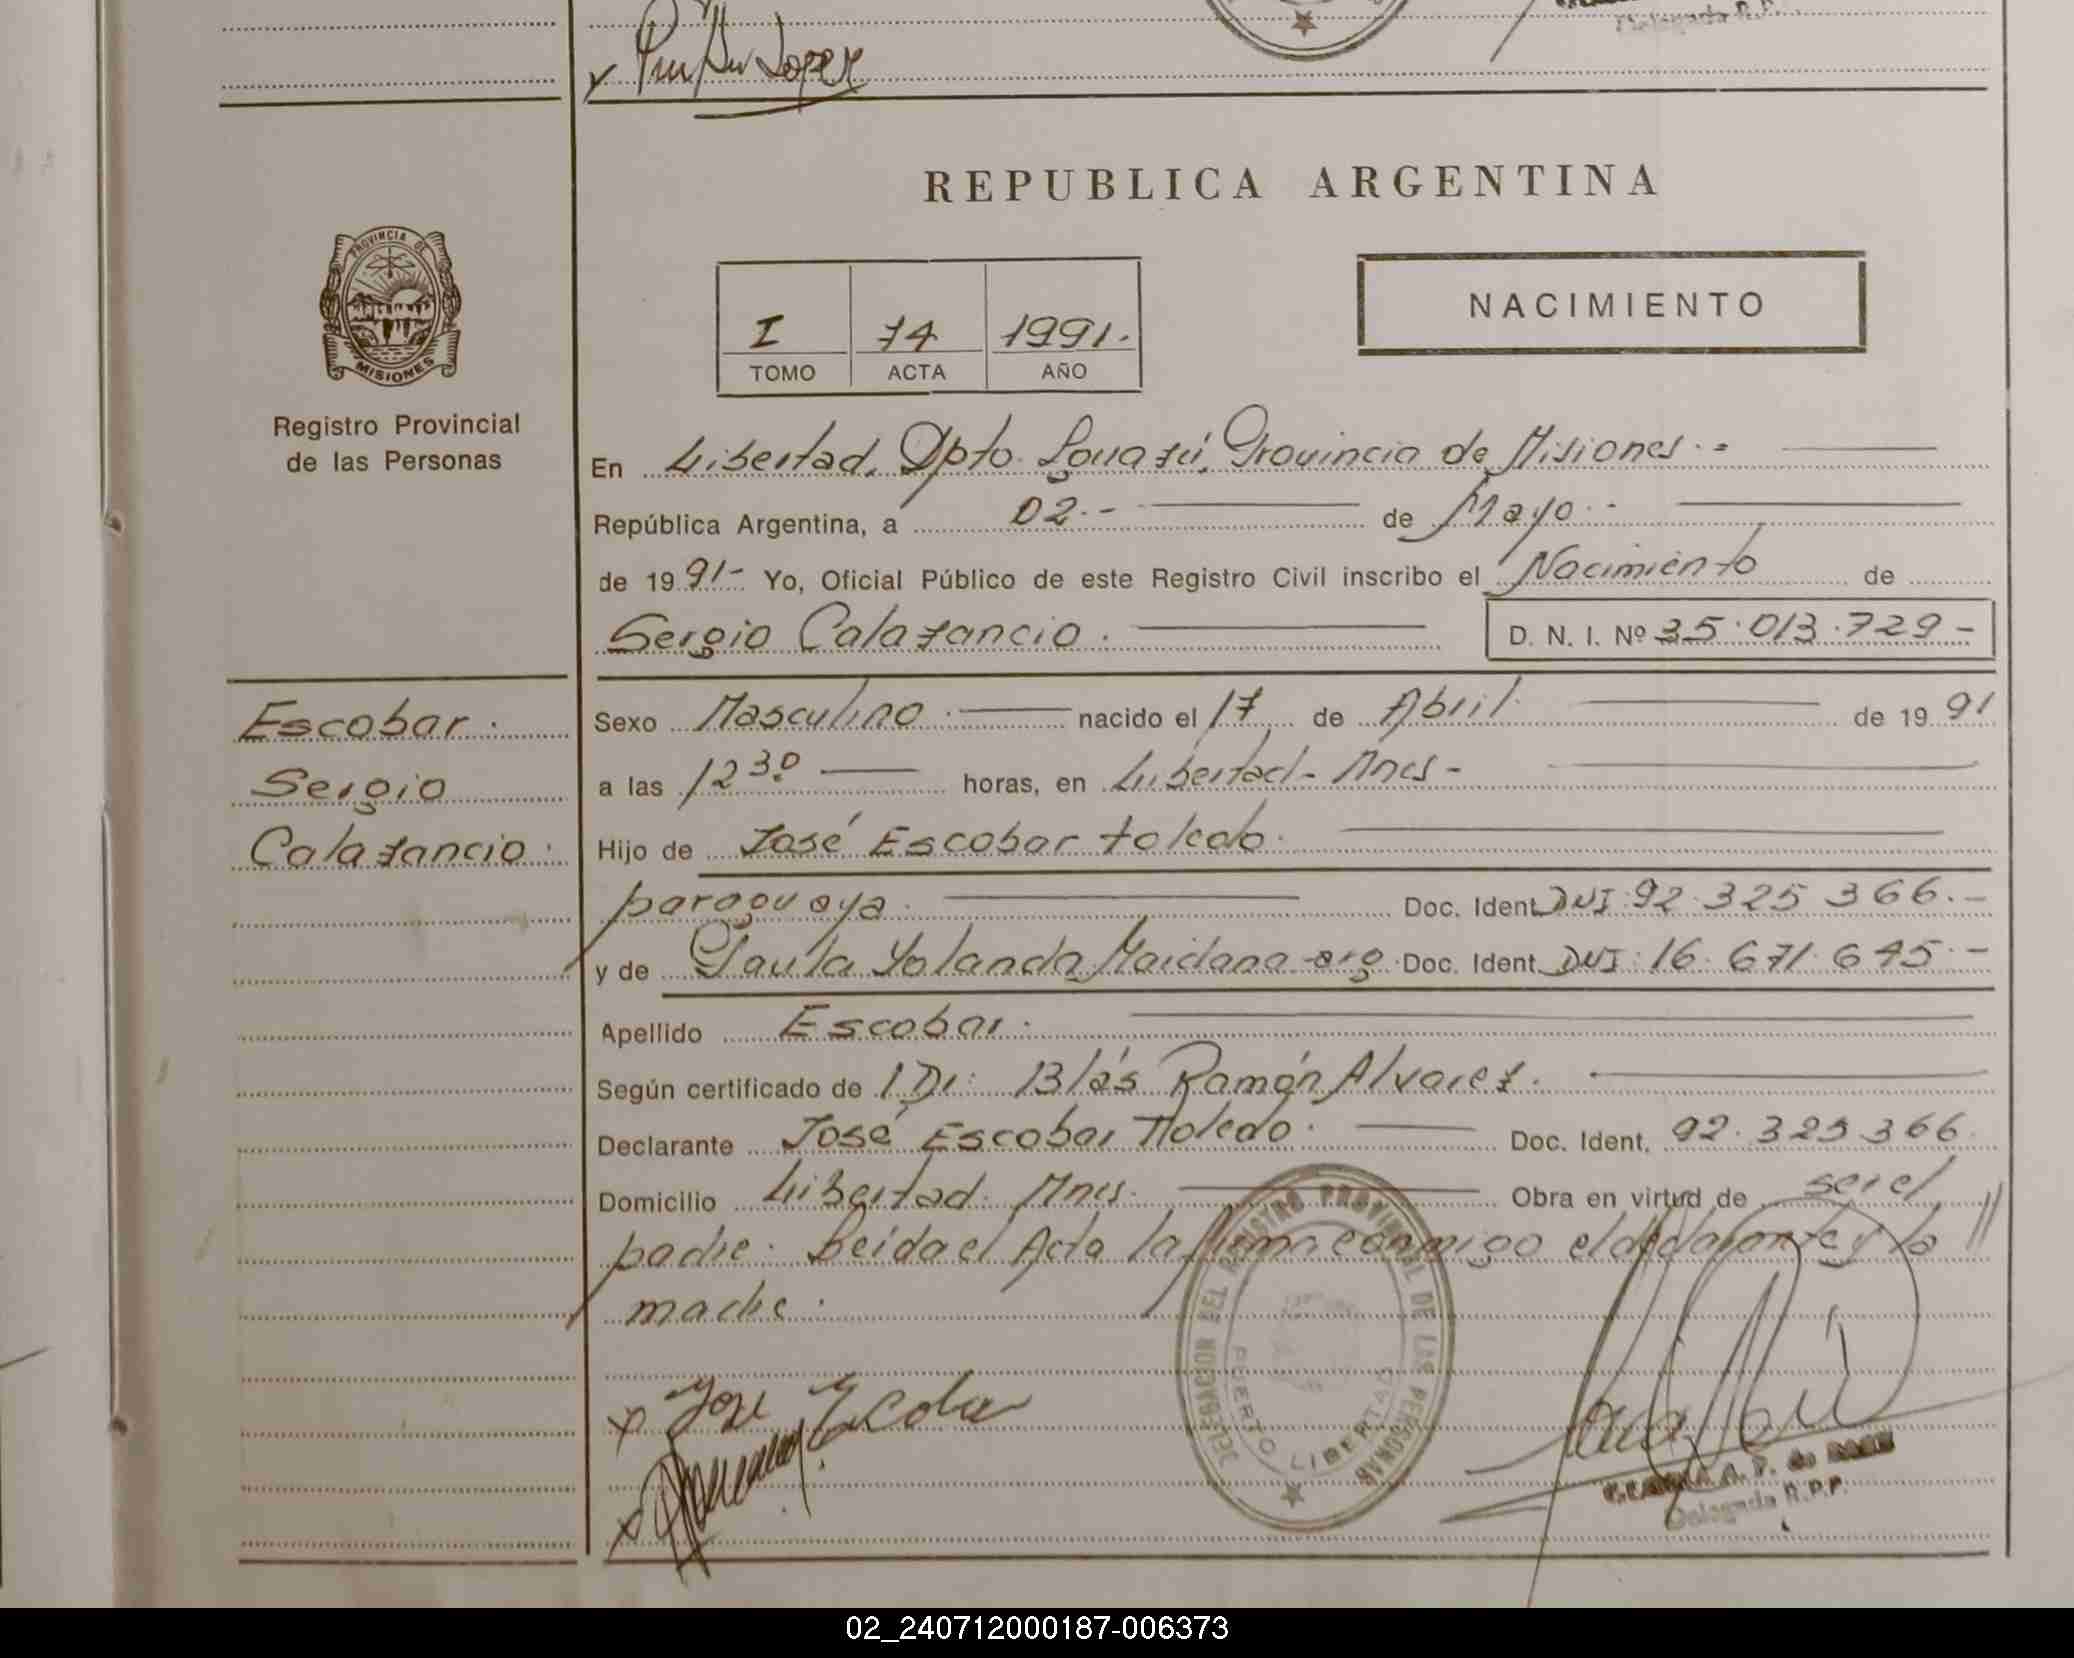 Lopez
Delegada R.P.
REPUBLICA ARGENTINA
PROVINCIA DE MISIONES
Registro Provincial
de las Personas
I 74 1991.-
TOMO ACTA AÑO
NACIMIENTO
En Libertad, Dpto. Iguazú, Provincia de Misiones.-
República Argentina, a 02.- de Mayo.-
de 1991- Yo, Oficial Público de este Registro Civil inscribo el Nacimiento de
Sergio Calazancio. D. N. I. Nº 35.013.729-
Escobar.
Sergio
Calazancio.
Sexo Masculino. nacido el 17 de Abril de 1991
a las 12 30 horas, en Libertad- Mnes-
Hijo de José Escobar toledo.
paraguaya. Doc. Ident. DNI: 92.325 366.-
y de Paula Yolanda Maidana-arg. Doc. Ident. DNI: 16.671.645.-
Apellido Escobar.
Según certificado de 1 Dr: Blás Ramón Alvarez.
Declarante José Escobar Toledo. Doc. Ident. 92.325 366.
Domicilio Libertad. Mnes. Obra en virtud de ser el
padre. Leida el Acta la firma conmigo el declarante y la //
madre.
DELEGACION DEL REGISTRO PROVINCIAL DE LAS PERSONAS
PUERTO LIBERTAD
x Jose Escobar
Delegada R.P.P.
02_240712000187-006373